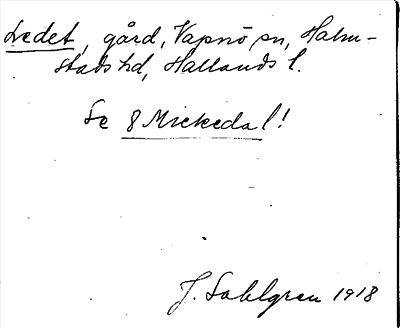 Ledet, gård, Vapnö sn, Halm-
stads hd, Hallands l.
Se 8 Mickedal!
J. Sahlgren 1918